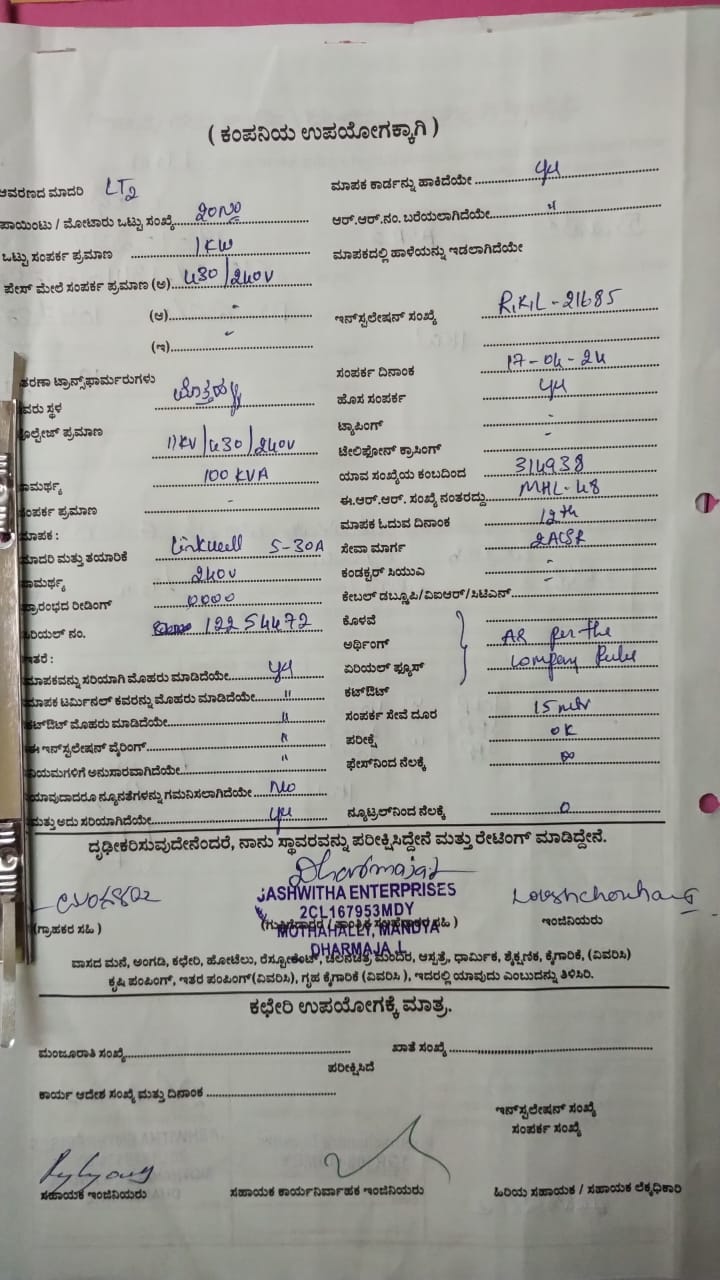 ( ಕಂಪನಿಯ ಉಪಯೋಗಕ್ಕಾಗಿ )
ಆವರಣದ ಮಾದರಿ LT2
ಪಾಯಿಂಟು / ಮೋಟಾರು ಒಟ್ಟು ಸಂಖ್ಯೆ
ಒಟ್ಟು ಸಂಪರ್ಕ ಪ್ರಮಾಣ 1KW
ಪೇಸ್ ಮೇಲೆ ಸಂಪರ್ಕ ಪ್ರಮಾಣ (ಅ) 430/240V
(ಆ) -
(ಇ) -
ಟ್ರಾನ್ಸ್‌ಫಾರ್ಮರುಗಳು
ಸ್ಥಳ
ಪ್ರಮಾಣ 11KV/430/240V
100 KVA
ಪ್ರಮಾಣ -
ಮಾಪಕ :
ಮಾದರಿ ಮತ್ತು ತಯಾರಿಕೆ Linkwell 5-30A
240V
ರೀಡಿಂಗ್ 0000
ನಂ. 12254472
ಇತರೆ :
ಮಾಪಕವನ್ನು ಸರಿಯಾಗಿ ಮೊಹರು ಮಾಡಿದೆಯೇ
ಮಾಪಕ ಟರ್ಮಿನಲ್ ಕವರನ್ನು ಮೊಹರು ಮಾಡಿದೆಯೇ "
ಕಟ್‌ಔಟ್ ಮೊಹರು ಮಾಡಿದೆಯೇ "
ಈ ಇನ್‌ಸ್ಟಲೇಷನ್ ವೈರಿಂಗ್ "
ನಿಯಮಗಳಿಗೆ ಅನುಸಾರವಾಗಿದೆಯೇ "
ಯಾವುದಾದರೂ ನ್ಯೂನತೆಗಳನ್ನು ಗಮನಿಸಲಾಗಿದೆಯೇ No
ಮತ್ತು ಅದು ಸರಿಯಾಗಿದೆಯೇ
ಮಾಪಕ ಕಾರ್ಡನ್ನು ಹಾಕಿದೆಯೇ
ಆರ್.ಆರ್.ನಂ. ಬರೆಯಲಾಗಿದೆಯೇ "
ಮಾಪಕದಲ್ಲಿ ಹಾಳೆಯನ್ನು ಇಡಲಾಗಿದೆಯೇ
ಇನ್‌ಸ್ಟಲೇಷನ್ ಸಂಖ್ಯೆ 21685
ಸಂಪರ್ಕ ದಿನಾಂಕ 17-04-24
ಹೊಸ ಸಂಪರ್ಕ
ಟ್ಯಾಪಿಂಗ್ -
ಟೆಲಿಫೋನ್ ಕ್ರಾಸಿಂಗ್ -
ಯಾವ ಸಂಖ್ಯೆಯ ಕಂಬದಿಂದ 314938
ಈ.ಆರ್.ಆರ್. ಸಂಖ್ಯೆ ನಂತರದ್ದು MHL-48
ಮಾಪಕ ಓದುವ ದಿನಾಂಕ 12th
ಸೇವಾ ಮಾರ್ಗ 2ACSR
ಕಂಡಕ್ಟರ್ ಸಿಯುವಿ -
ಕೇಬಲ್ ಡಬ್ಲ್ಯೂಪಿ/ವಿಐಆರ್/ಸಿಟಿಎನ್ -
ಕೊಳವೆ
ಅರ್ಥಿಂಗ್ As per the
ಏರಿಯಲ್ ಫ್ಯೂಸ್ Company Rules
ಕಟ್‌ಔಟ್
ಸಂಪರ್ಕ ಸೇವೆ ದೂರ 15 mtr
ಪರೀಕ್ಷೆ OK
ಫೇಸ್‌ನಿಂದ ನೆಲಕ್ಕೆ ∞
ನ್ಯೂಟ್ರಲ್‌ನಿಂದ ನೆಲಕ್ಕೆ 0
ದೃಢೀಕರಿಸುವುದೇನೆಂದರೆ, ನಾನು ಸ್ಥಾವರವನ್ನು ಪರೀಕ್ಷಿಸಿದ್ದೇನೆ ಮತ್ತು ರೇಟಿಂಗ್ ಮಾಡಿದ್ದೇನೆ.
Dharmaja L
JASHWITHA ENTERPRISES
2CL167953MDY
MOTHAHALLY, MANDYA
DHARMAJA L
(ಗ್ರಾಹಕರ ಸಹಿ )
ಇಂಜಿನಿಯರು
ವಾಸದ ಮನೆ, ಅಂಗಡಿ, ಕಛೇರಿ, ಹೋಟೆಲು, ರೆಸ್ಟೋರೆಂಟ್, ಚಲನಚಿತ್ರ ಮಂದಿರ, ಆಸ್ಪತ್ರೆ, ಧಾರ್ಮಿಕ, ಶೈಕ್ಷಣಿಕ, ಕೈಗಾರಿಕೆ, (ವಿವರಿಸಿ)
ಕೃಷಿ ಪಂಪಿಂಗ್, ಇತರ ಪಂಪಿಂಗ್(ವಿವರಿಸಿ), ಗೃಹ ಕೈಗಾರಿಕೆ (ವಿವರಿಸಿ ), ಇದರಲ್ಲಿ ಯಾವುದು ಎಂಬುದನ್ನು ತಿಳಿಸಿರಿ.
ಕಛೇರಿ ಉಪಯೋಗಕ್ಕೆ ಮಾತ್ರ.
ಮಂಜೂರಾತಿ ಸಂಖ್ಯೆ
ಖಾತೆ ಸಂಖ್ಯೆ
ಪರೀಕ್ಷಿಸಿದೆ
ಕಾರ್ಯ ಆದೇಶ ಸಂಖ್ಯೆ ಮತ್ತು ದಿನಾಂಕ
ಇನ್‌ಸ್ಟಲೇಷನ್ ಸಂಖ್ಯೆ
ಸಂಪರ್ಕ ಸಂಖ್ಯೆ
ಸಹಾಯಕ ಇಂಜಿನಿಯರು
ಸಹಾಯಕ ಕಾರ್ಯನಿರ್ವಾಹಕ ಇಂಜಿನಿಯರು
ಹಿರಿಯ ಸಹಾಯಕ / ಸಹಾಯಕ ಲೆಕ್ಕಧಿಕಾರಿ